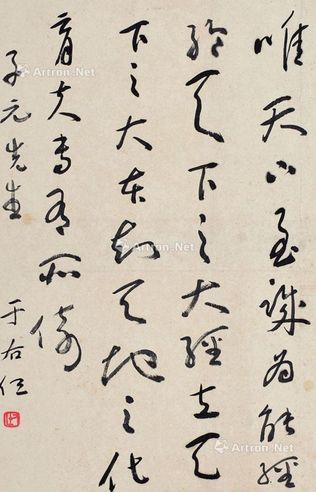 唯天下至誠為能經
綸天下之大經立天
下之大本知天地之化
育夫焉有所倚
子元先生
于右任
Artron.Net
Artron.Net
Artron.Net
Artron.Net
Artron.Net